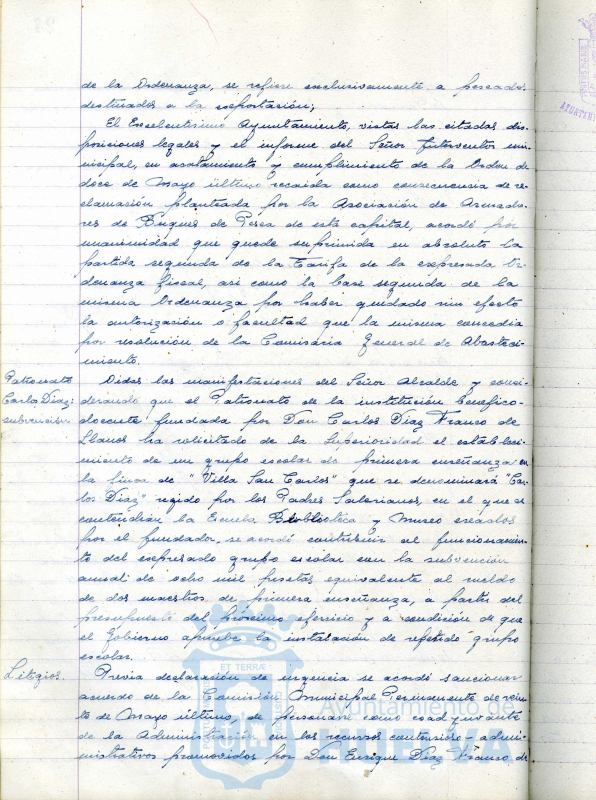 de la Ordenanza, se refiere exclusivamente a pescados
destinados a la exportación;
El Excelentísimo Ayuntamiento, vistas las citadas dis-
posiciones legales y el informe del Señor Interventor mu-
nicipal, en acatamiento y cumplimiento de la Orden de
doce de Mayo último recaida como consecuencia de re-
clamación planteada por la Asociación de Armado-
res de Buques de Pesca de esta capital, acordó por
unanimidad que quede suprimida en absoluto la
partida segunda de la Tarifa de la expresada Or-
denanza fiscal, asi como la base segunda de la
misma Ordenanza por haber quedado sin efecto
la autorización o facultad que la misma concedia
por resolución de la Comisaria General de Abasteci-
miento.
Patronato
Carlos Diaz:
subvención.
Oidas las manifestaciones del Señor Alcalde y consi-
derando que el Patronato de la institución benéfico-
docente fundada por Don Carlos Diaz Franco de
Llanos ha solicitado de la Superioridad el estableci-
miento de un grupo escolar de primera enseñanza en
la finca de "Villa San Carlos" que se denominará "Car-
los Diaz" regido por los Padres Salesianos, en el que se
contendrán la Escuela, Biblioteca y Museo creados
por el fundador, se acordó contribuir al funcionamien-
to del expresado grupo escolar con la subvención
anual de ocho mil pesetas equivalente al sueldo
de dos maestros de primera enseñanza, a partir del
presupuesto del próximo ejercicio y a condición de que
el Gobierno apruebe la instalación de referido grupo
escolar.
Litigios.
Previa declaración de urgencia se acordó sancionar
acuerdo de la Comisión Municipal Permanente de vein-
te de Mayo último, de personarse como coadyuvante
de la Administración en los recursos contencioso-admi-
nistrativos promovidos por Don Enrique Diaz Franco de
ET TERRÆ
Ayuntamiento de
HUELVA